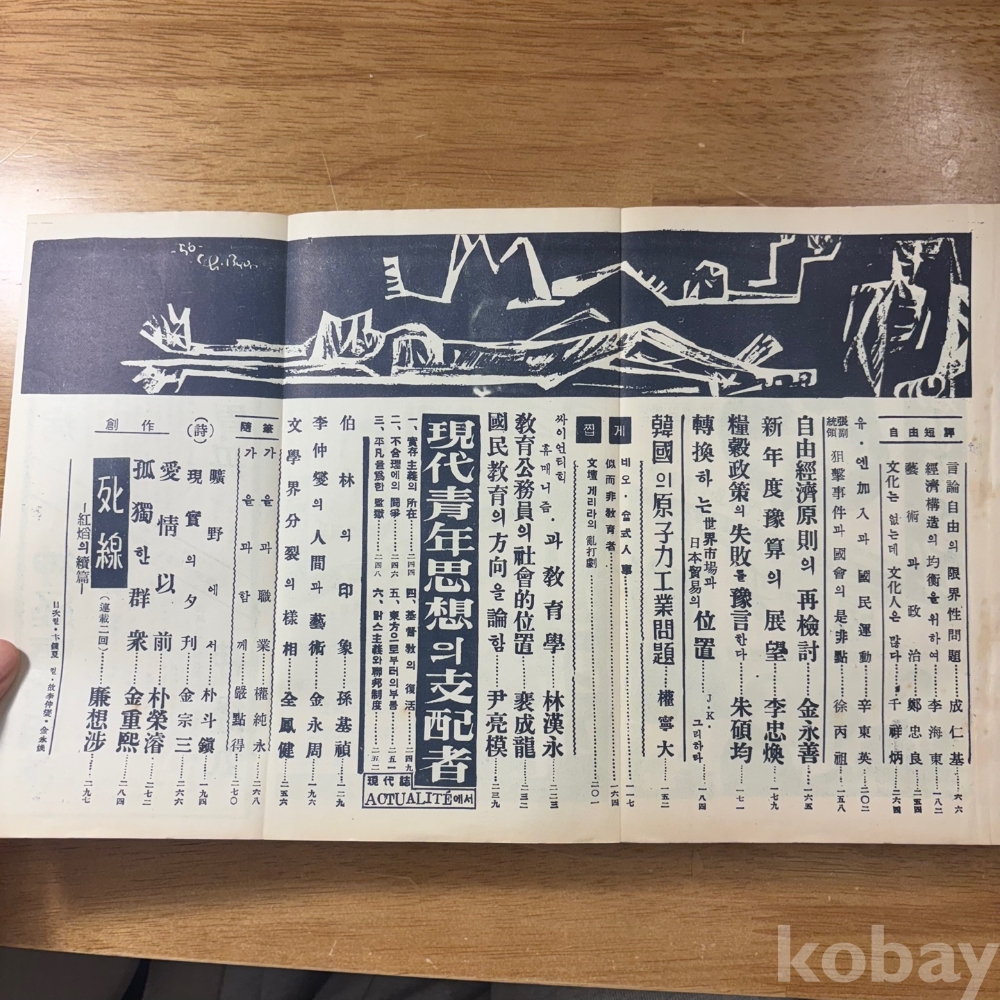 自由短評
言論自由의 限界性問題 成仁基 六六
經濟構造의 均衡을 위하여 李海東 一八二
藝術과 政治 鄭忠良 二五四
文化는 없는데 文化人은 많다 千祥炳 二六四
유·엔加入과 國民運動 辛東英 二〇二
張副統領 狙擊事件과 國會의 是·非點 徐丙祖 一五八
自由經濟原則의 再檢討 金永善 一六五
新年度豫算의 展望 李忠煥 一七九
糧穀政策의 失敗를 豫言한다 朱碩均 一七一
轉換하는 世界市場과 日本貿易의 位置 J.K.그리하타 一八四
韓國의 原子力工業問題 權寧大 一五二
게찝
네오·合式人事 一一七
似而非敎育者 一六四
文壇 게리라의 亂打劇 二〇一
싸이언티휙·휴매니즘·과 敎育學 林漢永 二二三
敎育公務員의 社會的位置 裵成龍 二三二
國民敎育의 方向을 論함 尹亮模 二三九
現代靑年思想의 支配者
現代誌 ACTUALITÉ에서
一、實存主義의 所在 二四四
二、不合理에의 鬪爭 二四六
三、平凡을 爲한 監獄 二四八
四、基督敎의 復活 二四九
五、東方으로부터의 부름 二五一
六、맑스主義와 聯邦制度 二五二
伯林의 印象 孫基禎 一二九
李仲燮의 人間과 藝術 金永周 一九六
文學界分裂의 樣相 全鳳健 二五六
隨筆
가을과 職業 權純永 二六八
가을과 함께 嚴點得 二七〇
(詩)
曠野에서 朴斗鎭 一九四
現實의 夕刊 金宗三 二六六
創作
愛情以前 朴榮濬 二七二
孤獨한 群衆 金重熙 二八四
死線
—紅焰의 續篇—
(連載二回) 廉想涉 二九七
目次컽·卞鍾夏 컽·故李仲燮·金永煥
-56-
kobay